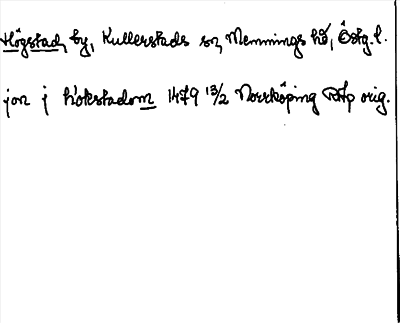 Högstad, by, Kullerstads sn, Memmings hd, Östg. l.
jon j høkstadom 1479 13/2 Norrköping RAp orig.